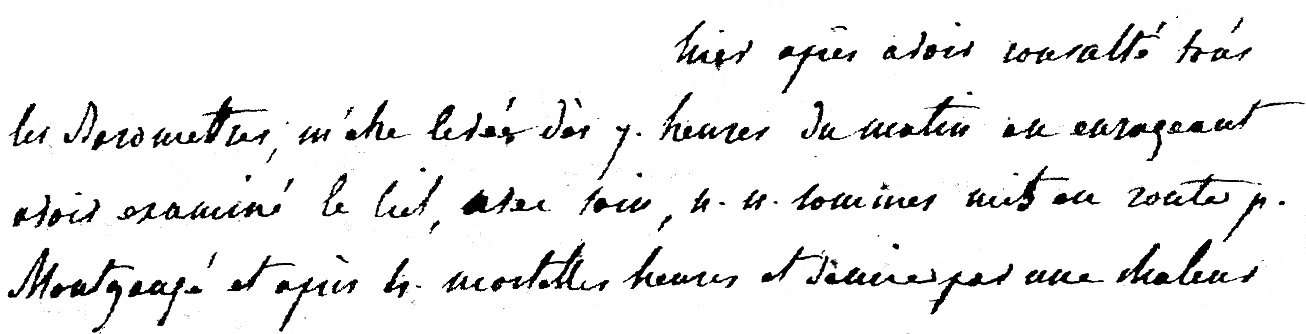 hier après avoir consulté tous
les Barometres, m'être levée dès 7. heures du matin en enrageant
avoir examiné le ciel, avec soin, n. n. sommes mis en route p.
et après 4. mortelles heures et demie par une chaleur